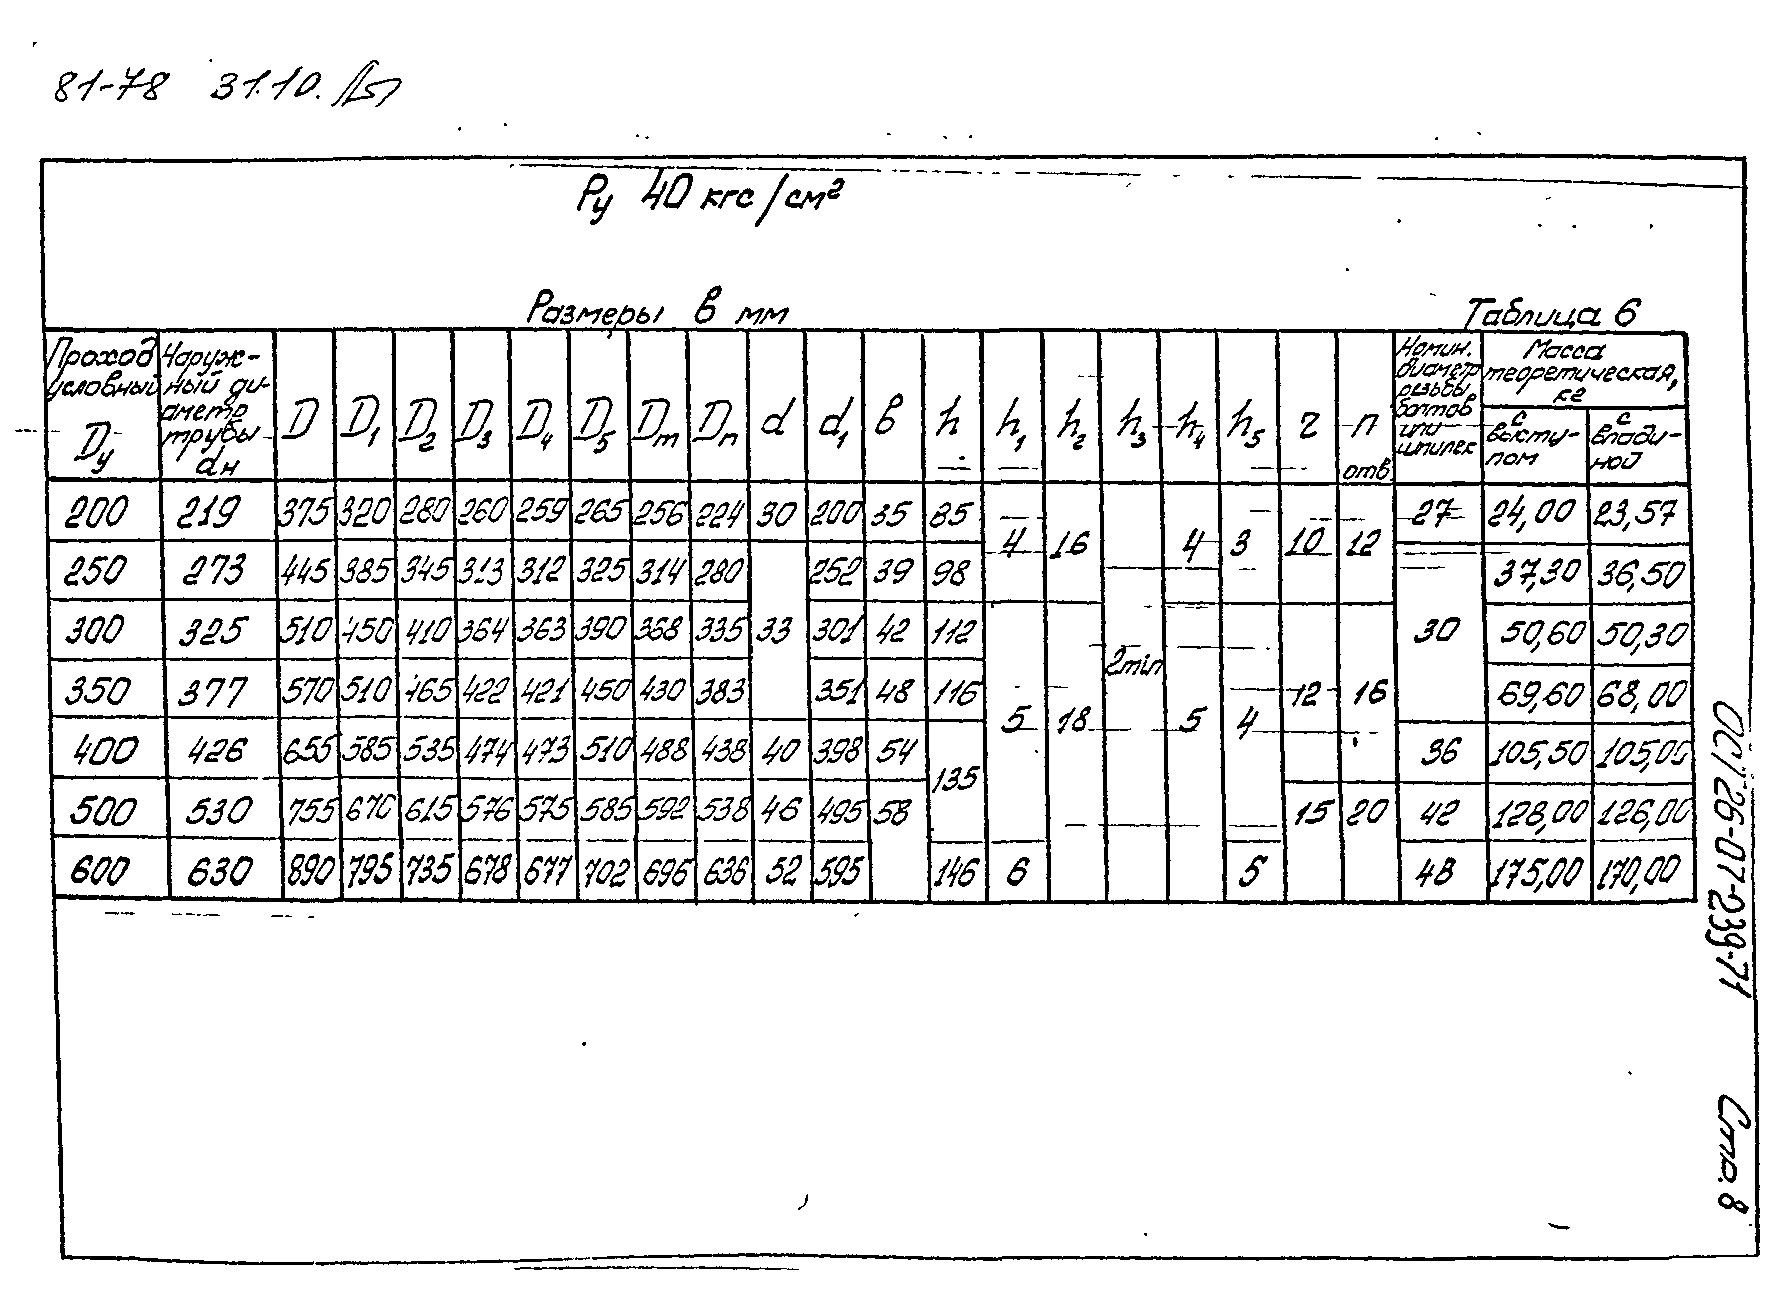 81-78 31.10.
Ру 40 кгс/см²
Размеры в мм
Таблица 6
Проход условный Dу | Наружный диаметр трубы dн | D | D1 | D2 | D3 | D4 | D5 | Dm | Dn | d | d1 | в | h | h1 | h2 | h3 | h4 | h5 | r | n отв. | Номин. диаметр резьбы болтов или шпилек | Масса теоретическая, кг
с выступом | с впадиной
200 | 219 | 375 | 320 | 280 | 260 | 259 | 265 | 256 | 224 | 30 | 200 | 35 | 85 | 4 | 16 | 2min | 4 | 3 | 10 | 12 | 27 | 24,00 | 23,57
250 | 273 | 445 | 385 | 345 | 313 | 312 | 325 | 314 | 280 | 33 | 252 | 39 | 98 | 30 | 37,30 | 36,50
300 | 325 | 510 | 450 | 410 | 364 | 363 | 390 | 368 | 335 | 301 | 42 | 112 | 5 | 18 | 5 | 4 | 12 | 16 | 50,60 | 50,30
350 | 377 | 570 | 510 | 465 | 422 | 421 | 450 | 430 | 383 | 351 | 48 | 116 | 69,60 | 68,00
400 | 426 | 655 | 585 | 535 | 474 | 473 | 510 | 488 | 438 | 40 | 398 | 54 | 135 | 36 | 105,50 | 105,00
500 | 530 | 755 | 670 | 615 | 576 | 575 | 585 | 592 | 538 | 46 | 495 | 58 | 15 | 20 | 42 | 128,00 | 126,00
600 | 630 | 890 | 795 | 735 | 678 | 677 | 702 | 696 | 636 | 52 | 595 | 146 | 6 | 5 | 48 | 175,00 | 170,00
ОСТ 26-07-239-71 Стр. 8